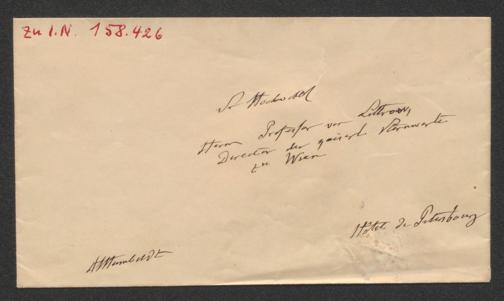 Zu I.N. 158.426
Sr Hochwohl
Herrn Professor von Littrow,
Director der kaiserl Sternwarte
zu Wien
Hôtel de Petersbourg
AHumboldt